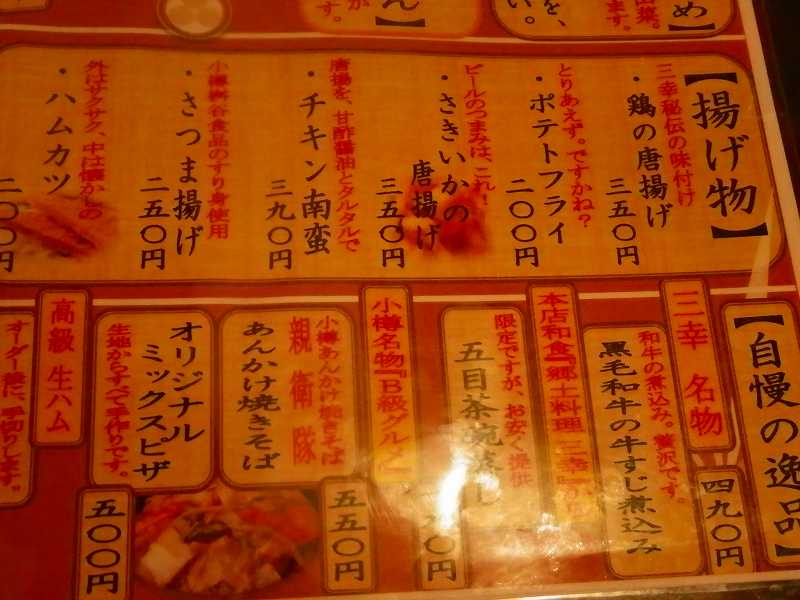 【揚げ物】
三幸秘伝の味付け
・鶏の唐揚げ
三五〇円
とりあえず。ですかね?
・ポテトフライ
二〇〇円
ビールのつまみは、これ!
・さきいかの
唐揚げ
三五〇円
唐揚を、甘酢醤油とタルタルで
・チキン南蛮
三九〇円
小樽
食品のすり身使用
・さつま揚げ
二五〇円
外はサクサク、中は懐かしの
・ハムカツ
二〇〇円
【自慢の逸品】
三幸 名物
和牛の煮込み。贅沢です。
黒毛和牛の牛すじ煮込み
四九〇円
本店和食『郷土料理 三幸』から
限定ですが、お安く提供
五目茶碗蒸し
〇円
小樽名物『B級グルメ』
小樽あんかけ焼きそば
親衛隊
あんかけ焼きそば
五五〇円
オリジナル
ミックスピザ
生地からすべて手作りです。
五〇〇円
高級 生ハム
オーダー後に、手切りします。